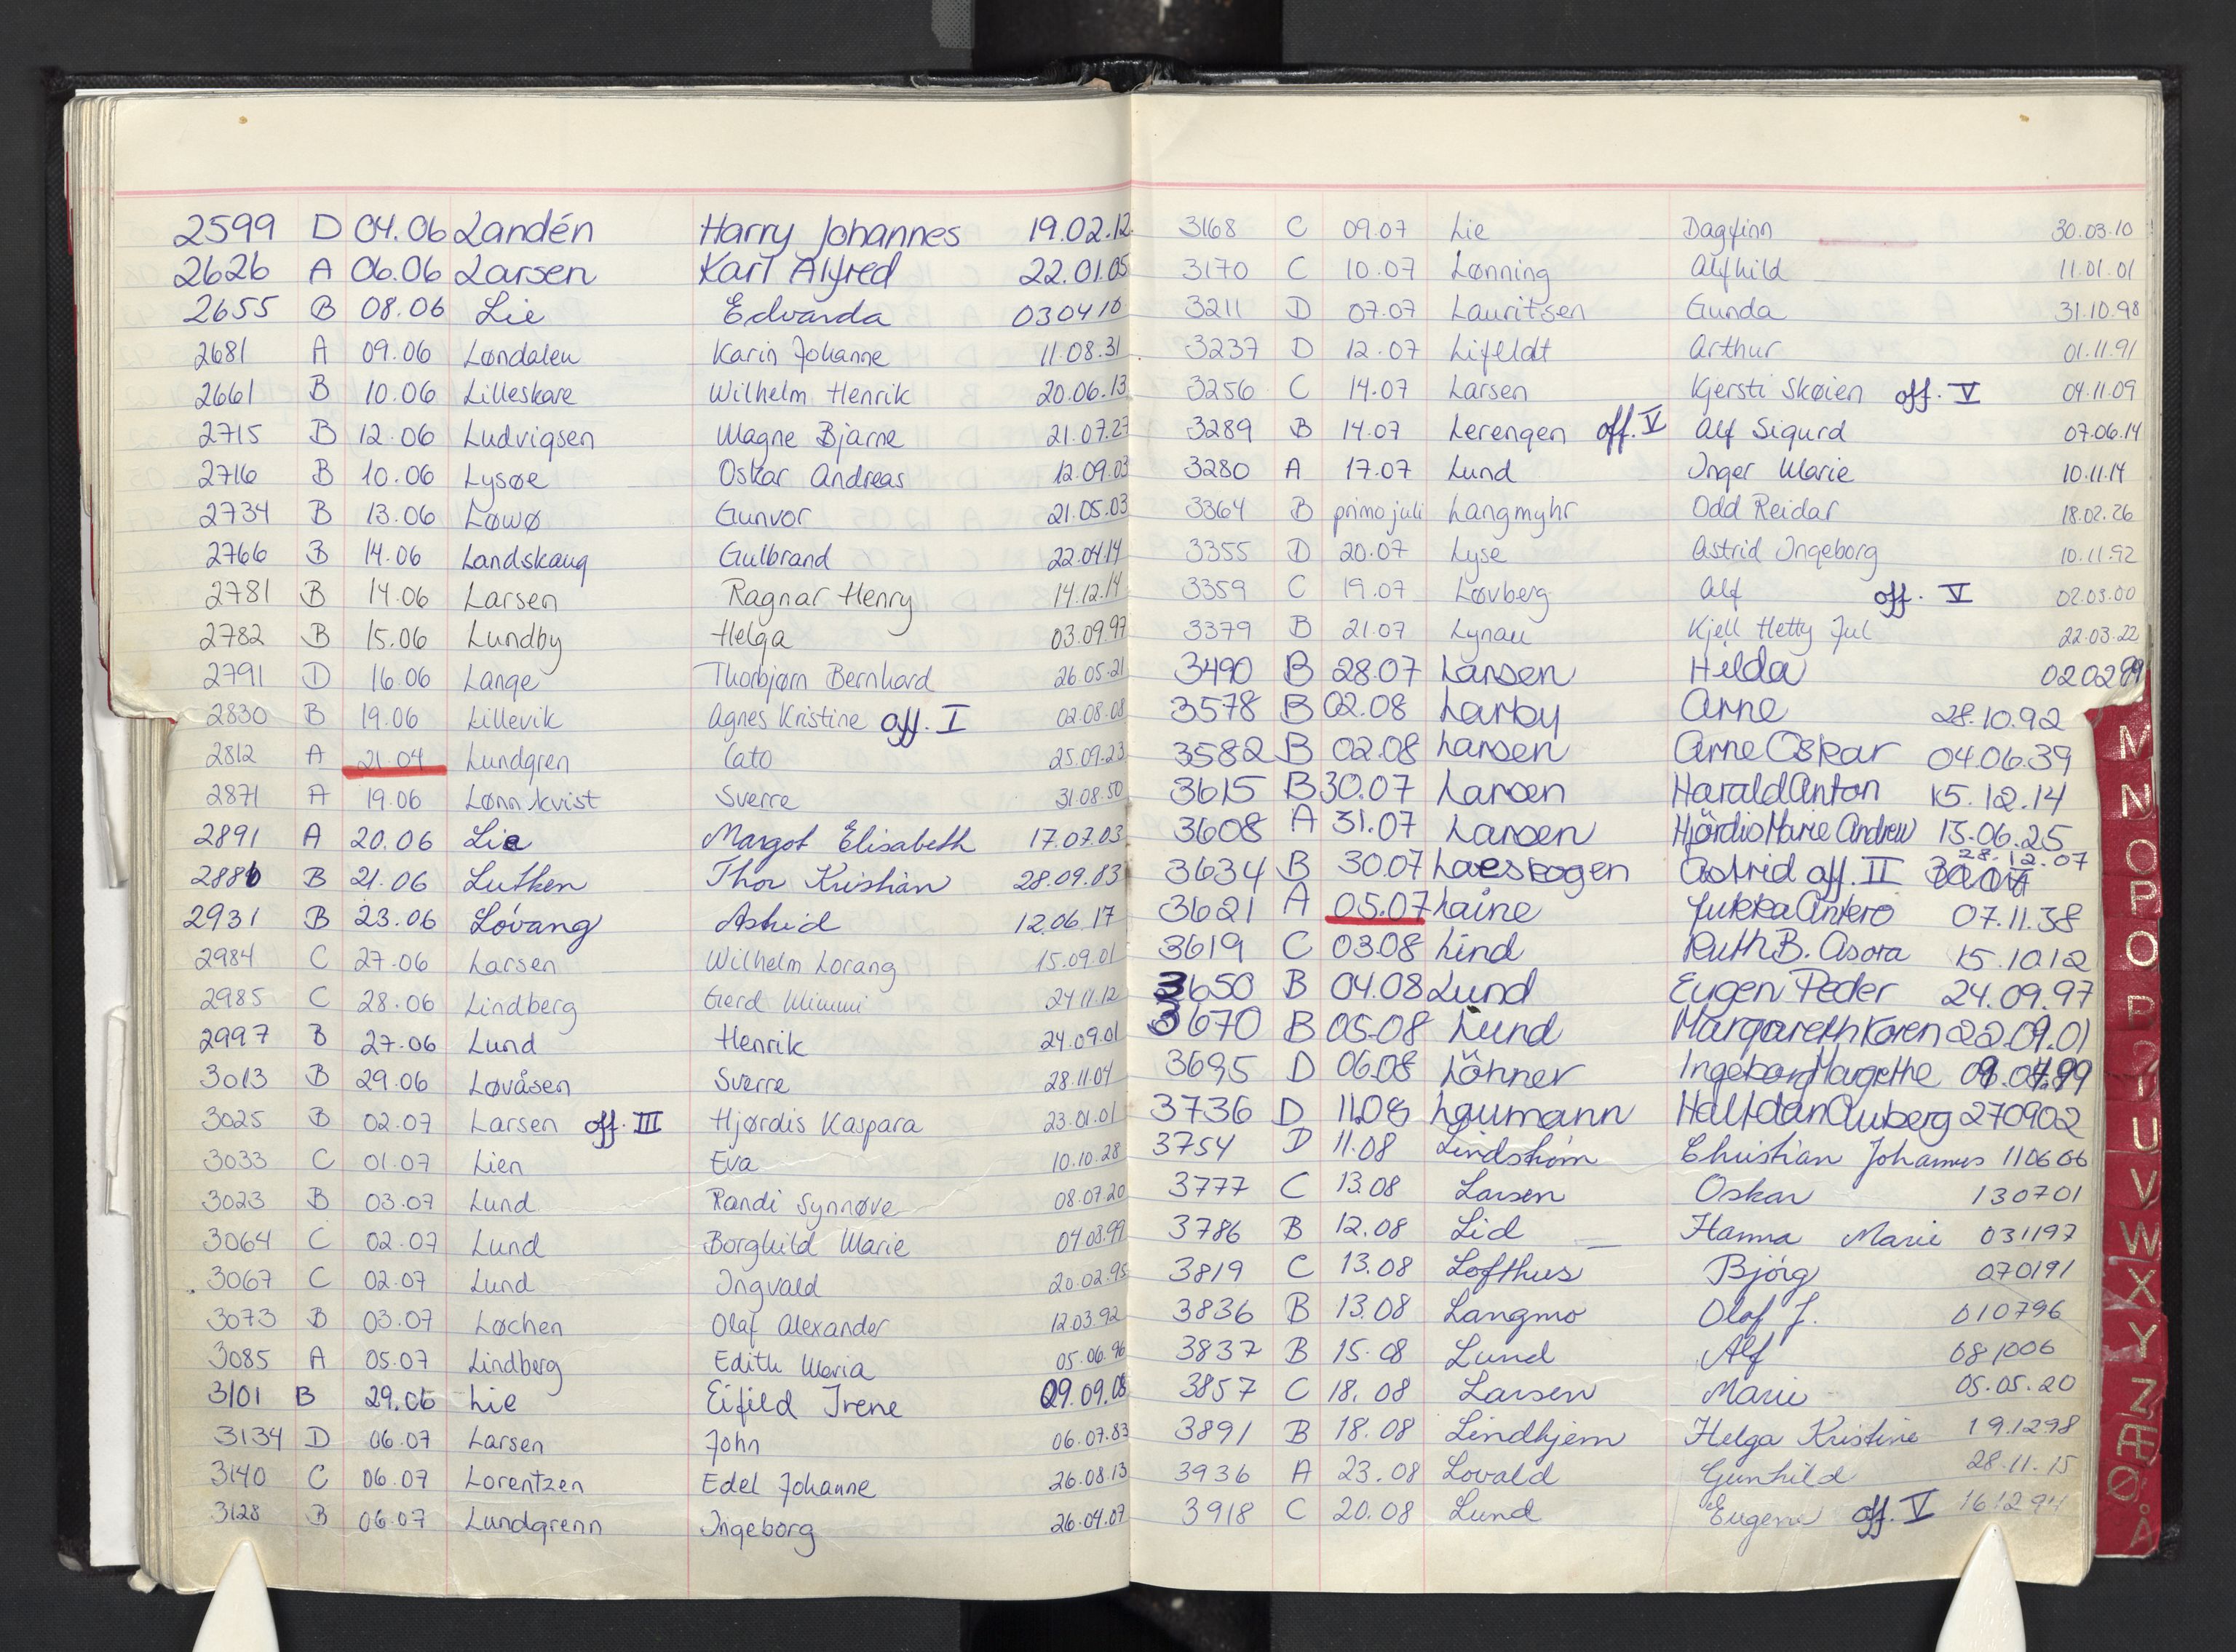 2599 D 04.06 Landén Harry Johannes 19.02.12
2626 A 06.06 Larsen Karl Alfred 22.01.05
2655 B 08.06 Lie Edvarda 030410
2681 A 09.06 Løndalen Karin Johanne 11.08.31
2661 B 10.06 Lilleskare Wilhelm Henrik 20.06.13
2715 B 12.06 Ludvigsen Magne Bjarne 21.07.27
2716 B 10.06 Lysøe Oskar Andreas 12.09.03
2734 B 13.06 Løwø Gunvor 21.05.03
2766 B 14.06 Landskaug Gulbrand 22.04.14
2781 B 14.06 Larsen Ragnar Henry 14.12.14
2782 B 15.06 Lundby Helga 03.09.97
2791 D 16.06 Lange Thorbjørn Bernhard 26.05.21
2830 B 19.06 Lillevik Agnes Kristine off. I 02.08.08
2812 A 21.04 Lundgren Cato 25.09.23
2871 A 19.06 Lønnkvist Sverre 31.08.50
2891 A 20.06 Lie Margot Elisabeth 17.07.03
2886 B 21.06 Lutken Thor Kristian 28.09.03
2931 B 23.06 Lóvang Astrid 12.06.17
2984 C 27.06 Larsen Wilhelm Lorang 15.09.01
2985 C 28.06 Lindberg Gerd Mimmi 24.11.12
2997 B 27.06 Lund Henrik 24.09.01
3013 B 29.06 Løvåsen Sverre 28.11.04
3025 B 02.07 Larsen off. III Hjørdis Kaspara 23.01.01
3033 C 01.07 Lien Eva 10.10.28
3023 B 03.07 Lund Randi Synnøve 08.07.20
3064 C 02.07 Lund Borghild Marie 04.03.99
3067 C 02.07 Lund Ingvald 20.02.95
3073 B 03.07 Løchen Olaf Alexander 12.03.92
3085 A 05.07 Lindberg Edith Maria 05.06.96
3101 B 29.06 Lie Eifild Irene 09.09.08
3134 D 06.07 Larsen John 06.07.83
3140 C 06.07 Lorentzen Edel Johanne 26.08.13
3128 B 06.07 Lundgrenn Ingeborg 26.04.07
3168 C 09.07 Lie Dagfinn 30.03.10
3170 C 10.07 Lønning Alfhild 11.01.01
3211 D 07.07 Lauritsen Gunda 31.10.98
3237 D 12.07 Lifeldt Arthur 01.11.91
3256 C 14.07 Larsen Kjersti Skøien off. V 04.11.09
3289 B 14.07 Lerengen off. V Alf Sigurd 07.06.14
3280 A 17.07 Lund Inger Marie 10.11.14
3364 B primo juli Langmyhr Odd Reidar 18.02.26
3355 D 20.07 Lyse Astrid Ingeborg 10.11.92
3359 C 19.07 Løvberg Alf off. V 02.03.00
3379 B 21.07 Lynau Kjell Hetty Jul 22.03.22
3490 B 28.07 Larsen Hilda 020299
3578 B 02.08 Larby Arne 28.10.92
3582 B 02.08 Larsen Arne Oskar 04.06.39
3615 B 30.07 Larsen Harald Anton 15.12.14
3608 A 31.07 Larsen Hjördis Marie Andrea 13.06.25
3634 B 30.07 Laeskogen Astrid off. II 28.12.07
3621 A 05.07 Laine Jukka Antero 07.11.38
3619 C 03.08 Lind Ruth B. Asora 15.10.12
3650 B 04.08 Lund Eugen Peder 24.09.97
3670 B 05.08 Lund Margareth Karen 22.09.01
3695 D 06.08 Löhner Ingeborg Margethe
3736 D 11.08 Laumann Halfdan Auberg 270902
3754 D 11.08 Lindstrøm Christian Johannes 110606
3777 C 13.08 Larsen Oskar 130701
3786 B 12.08 Lid Hanna Marie 031197
3819 C 13.08 Lofthus Bjórg 070191
3836 B 13.08 Langmo Olaf J. 010796
3837 B 15.08 Lund Alf 081006
3857 C 18.08 Larsen Marie 05.05.20
3891 B 18.08 Lindhjem Helga Kristine 19.1298
3936 A 23.08 Lovald Gunhild 28.11.15
3918 C 20.08 Lund Eugene off. V 161294
M
N
O
P
Q
R
U
V
W
X
Y
Z
Æ
Ø
Å